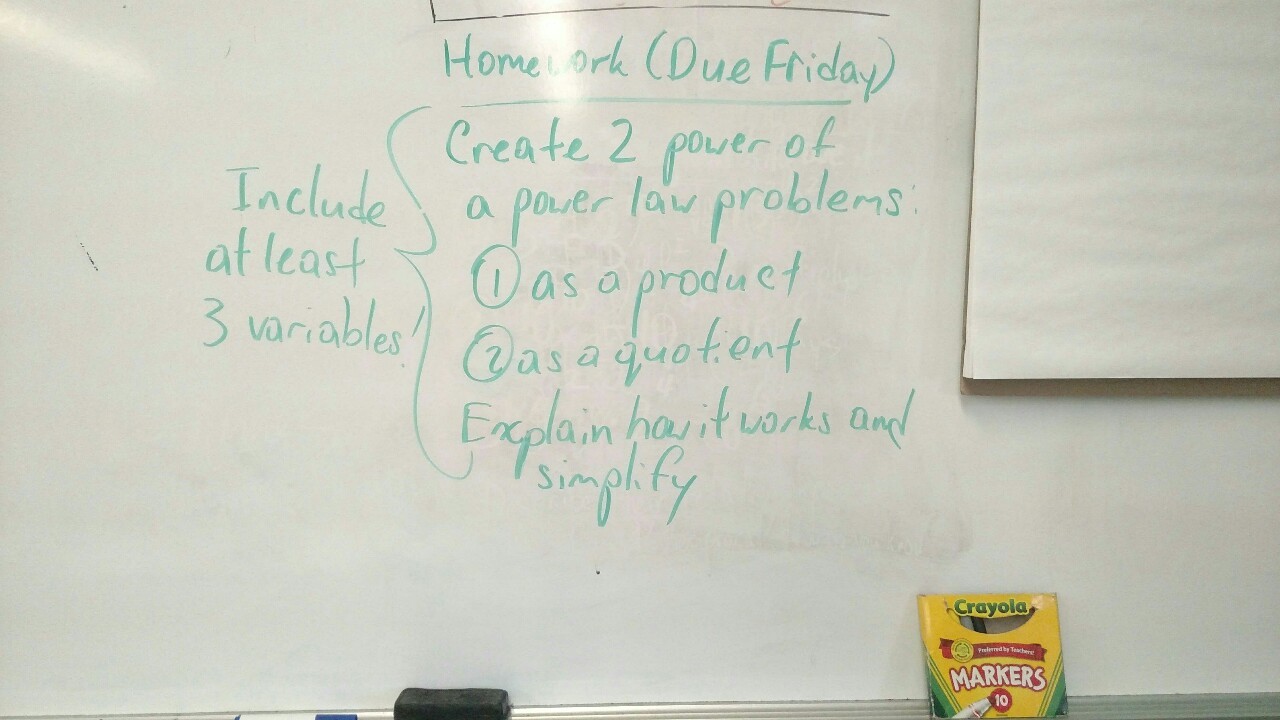 Homework (Due Friday)
Create 2 power of
a power law problems:
① as a product
② as a quotient
Explain how it works and
simplify
Include
at least
3 variables!
Crayola
Preferred by Teachers!
MARKERS
10